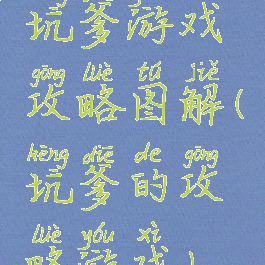 坑爹游戏
gōng lüè tú jiě
攻略图解(
kēng diē de gōng
坑爹的攻
lüè yóu xì
略游戏)